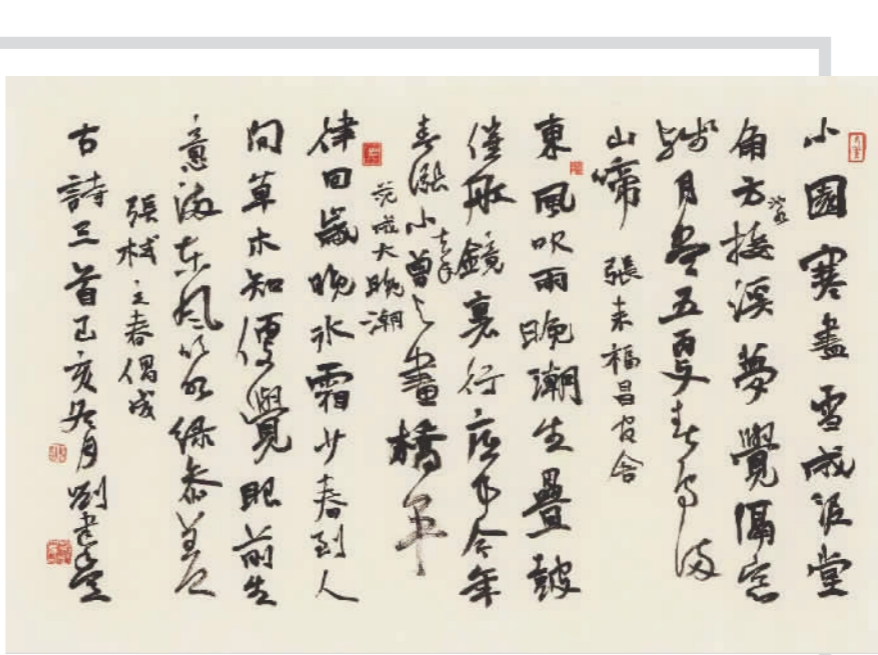 小園寒盡雪成泥堂
角方池水接溪夢覺隔窓
殘月尽五更春鳥滿
山啼 張耒福昌官舍
東風吹雨晚潮生疊鼓
催船鏡裏行底事今年
春漲小去年曾与畫橋平
范成大晚潮
律回歲晚冰霜少春到人
間草木知便覺眼前生
意滿東風吹水綠參差
張栻立春偶成
古詩三首己亥冬月劉